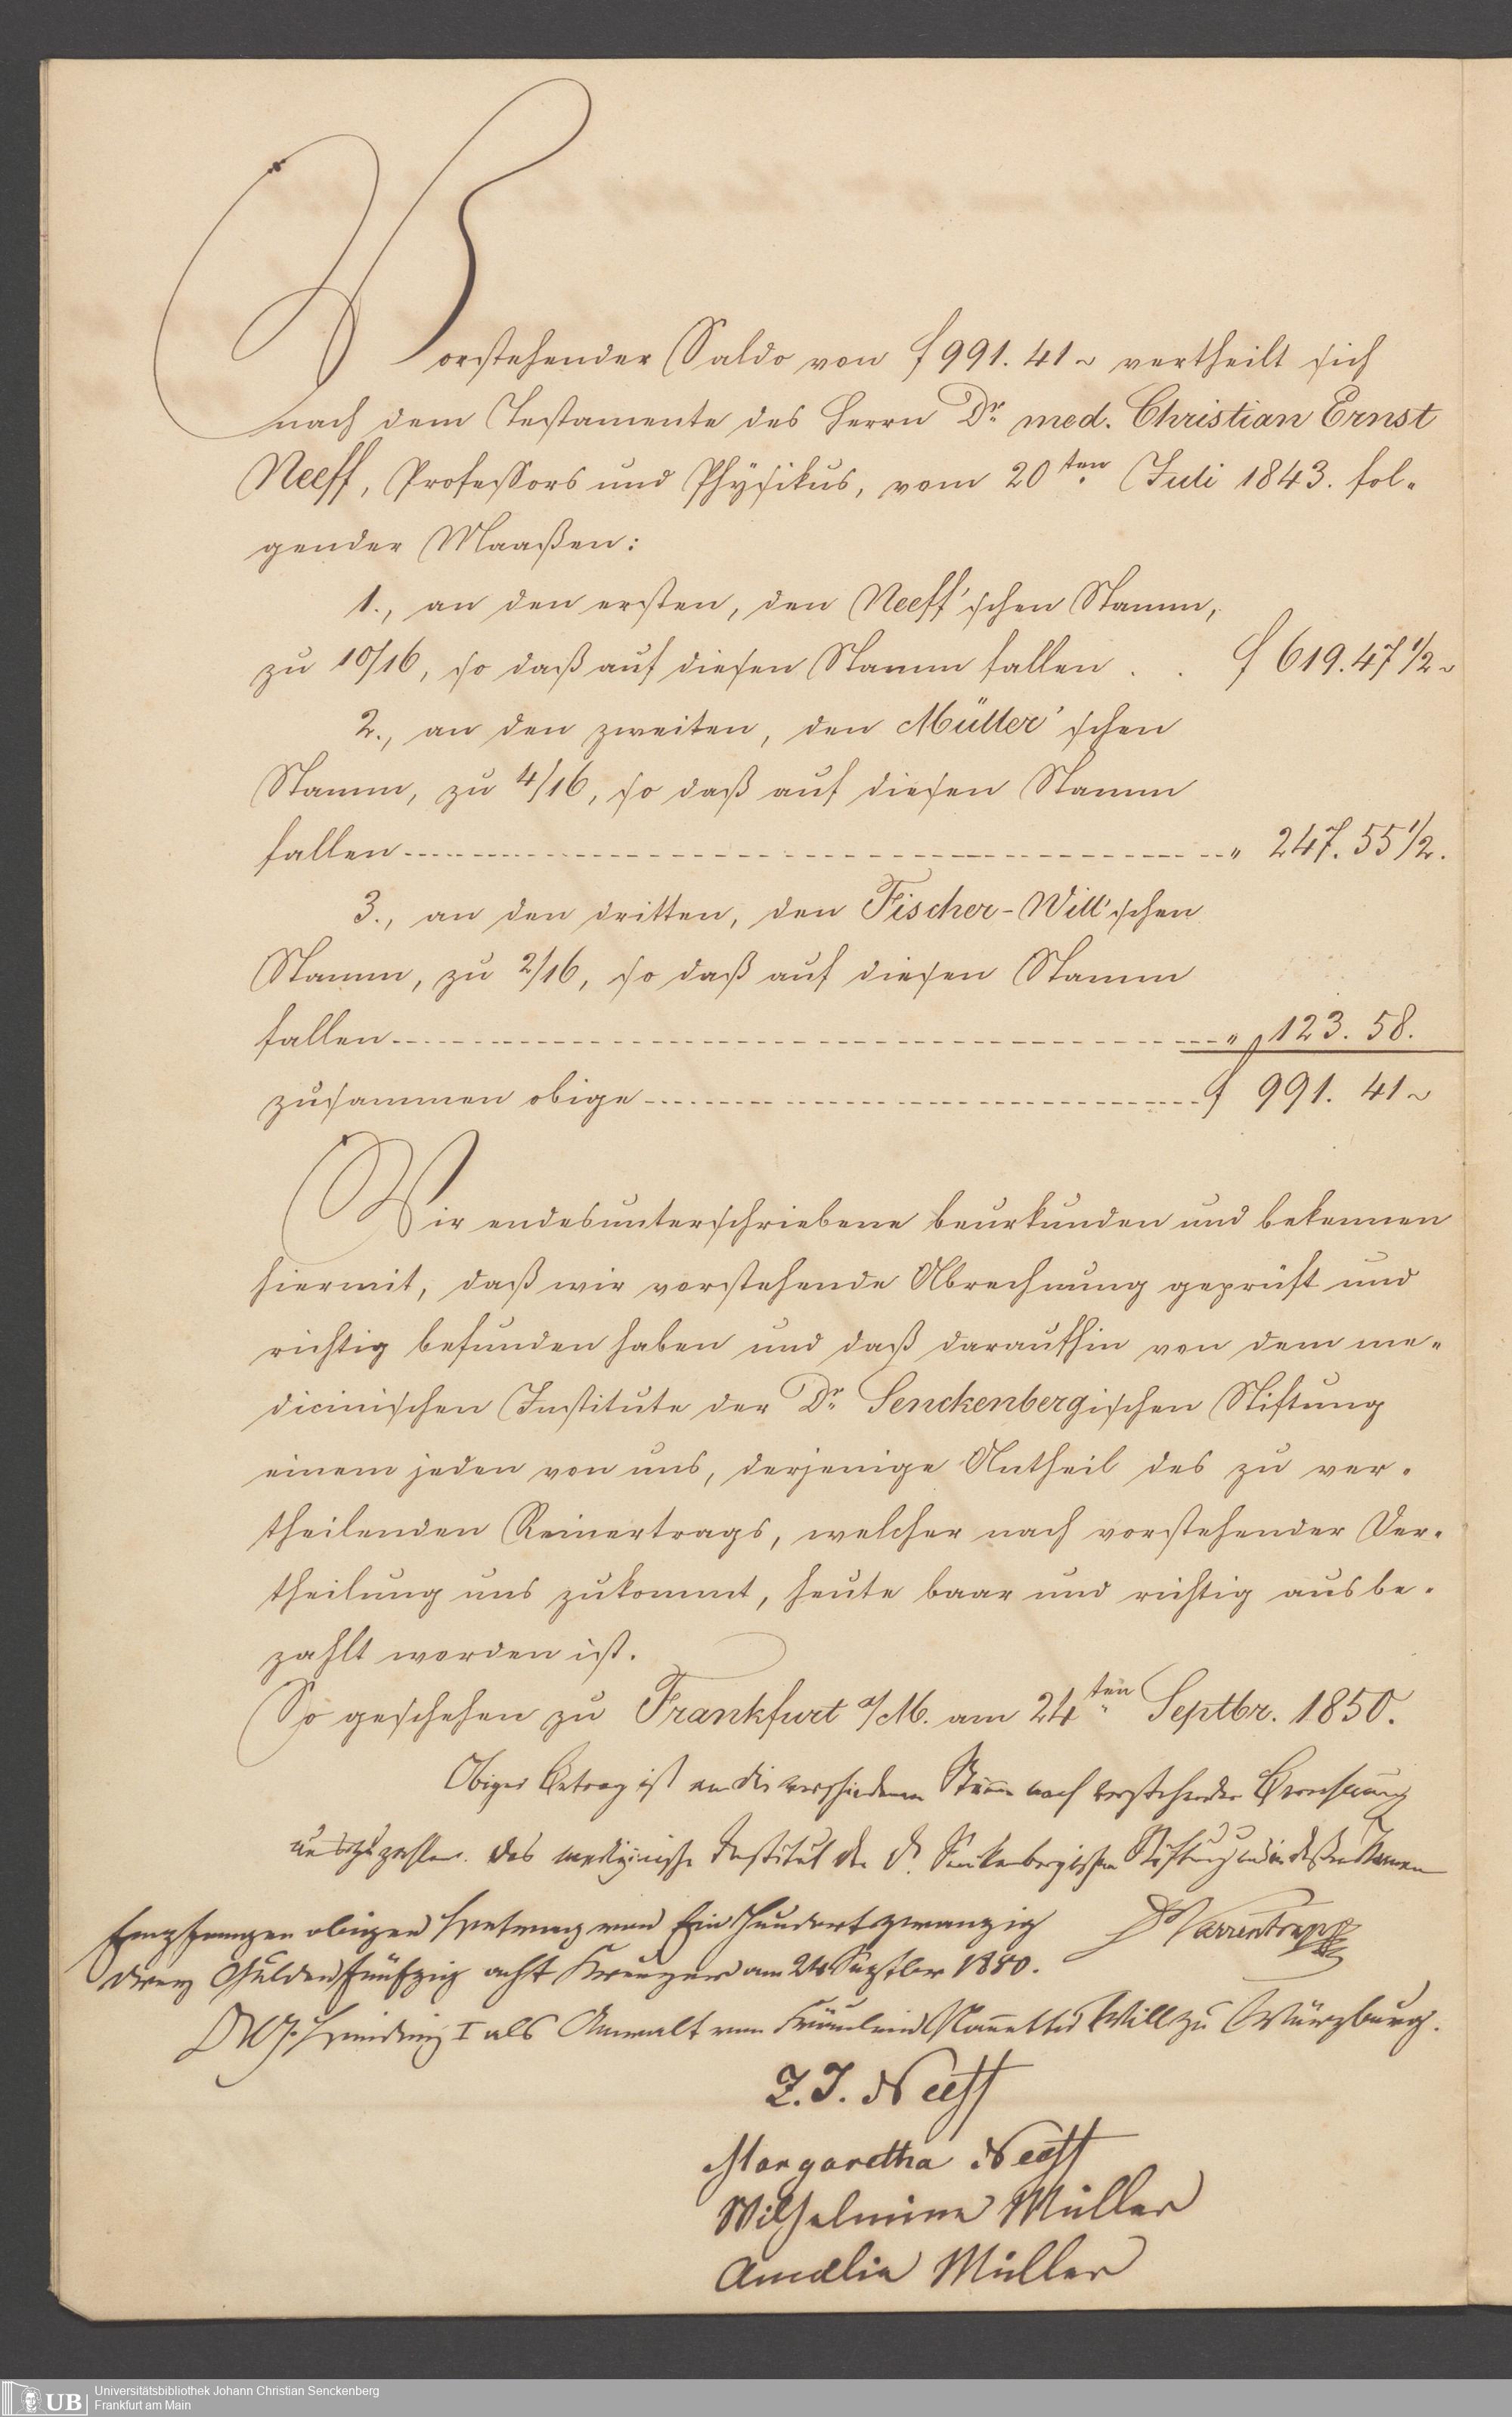 Vorstehender Saldo von f 991. 41 ~ vertheilt sich
nach dem Testamente des Herrn Dr. med. Christian Ernst
Neeff, Professors und Physikus, vom 20ten Juli 1843. fol-
gender Maaßen:
1., an den ersten, den Neeff'schen Stamm,
zu 10/16, so daß auf diesen Stamm fallen . . f 619. 47 1/2 ~
2., an den zweiten, den Müller'schen
Stamm, zu 4/16, so daß auf diesen Stamm
fallen " 247. 55 1/2.
3., an den dritten, den Fischer-Will'schen
Stamm, zu 2/16, so daß auf diesen Stamm
fallen " 123. 58.
zusammen obige f 991. 41 ~
Wir endesunterschriebene beurkunden und bekennen
hiermit, daß wir vorstehende Abrechnung geprüft und
richtig befunden haben und daß daraufhin von dem me-
dicinischen Institute der Dr. Senckenbergischen Stiftung
einem jeden von uns, derjenige Antheil des zu ver-
theilenden Reinertrags, welcher nach vorstehender Ver-
theilung uns zukommt, heute baar und richtig ausbe-
zahlt worden ist.
So geschehen zu Frankfurt a/M. am 24ten Septbr. 1850.
Obiger Betrag ist an die verschiedenen Stämme nach vorstehender Berechnung
auszuzahlen. Das medizinische Institut der Dr. Senkenbergischen Stiftung und in dessen Namen
Dr Varrentrapp
Empfangen obigen Betrag von Ein Hundert zwanzig
drey Gulden fünfzig acht Kreuzer am 24 Septbr 1850.
I als Anwalt von Fräulein Nanette Will zu Würzburg.
Z. J. Neeff
Margaretha Neeff
Wilhelmine Müller
Amelia Müller
UB
Universitätsbibliothek Johann Christian Senckenberg
Frankfurt am Main